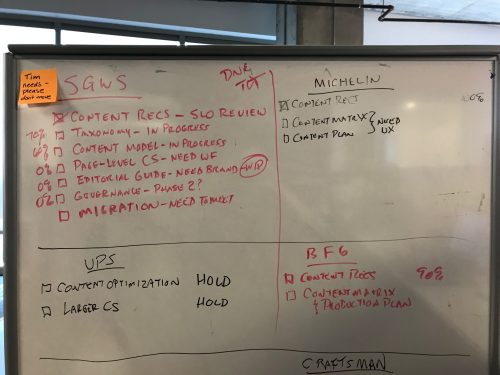 Tim
needs -
please
don't move
SGWS
DNE
CONTENT RECS - SLO REVIEW
70% TAXONOMY - IN PROGRESS
CONTENT MODEL - IN PROGRESS
0% PAGE-LEVEL CS - NEED WF
0% EDITORIAL GUIDE - NEED BRAND
0% GOVERNANCE - PHASE 2?
MIGRATION - NEED TO MEET
MICHELIN
CONTENT RECS
CONTENT MATRIX } NEED
CONTENT PLAN UX
UPS
CONTENT OPTIMIZATION HOLD
LARGER CS HOLD
BFG
CONTENT RECS 90%
CONTENT MATRIX
& PRODUCTION PLAN
CRAFTSMAN